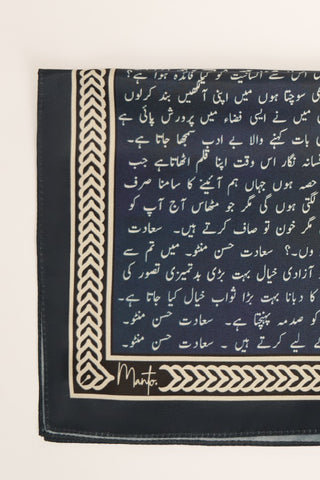 اس سے انسانیت کو کیا فائدہ ہوا ہے؟
سوچتا ہوں میں اپنی آنکھیں بند کرلوں
میں نے ایسی فضا میں پرورش پائی ہے
بات کہنے والا بے ادب سمجھا جاتا ہے۔
افسانہ نگار اس وقت اپنا قلم اٹھاتا ہے جب
حصہ ہوں جہاں ہم آئینے کا سامنا صرف
لگتی ہوں گی مگر جو مٹھاس آج آپ کو
مگر خون تو صاف کرتے ہیں۔ سعادت
وں۔؟ سعادت حسن منٹو۔ میں تم سے
آزادی خیال بہت بڑی بدتمیزی تصور کی
کا دبانا بہت بڑا ثواب خیال کیا جاتا ہے۔
کو صدمہ پہنچتا ہے۔ سعادت حسن منٹو۔
لیے کرتے ہیں۔ سعادت حسن منٹو۔
Manto.